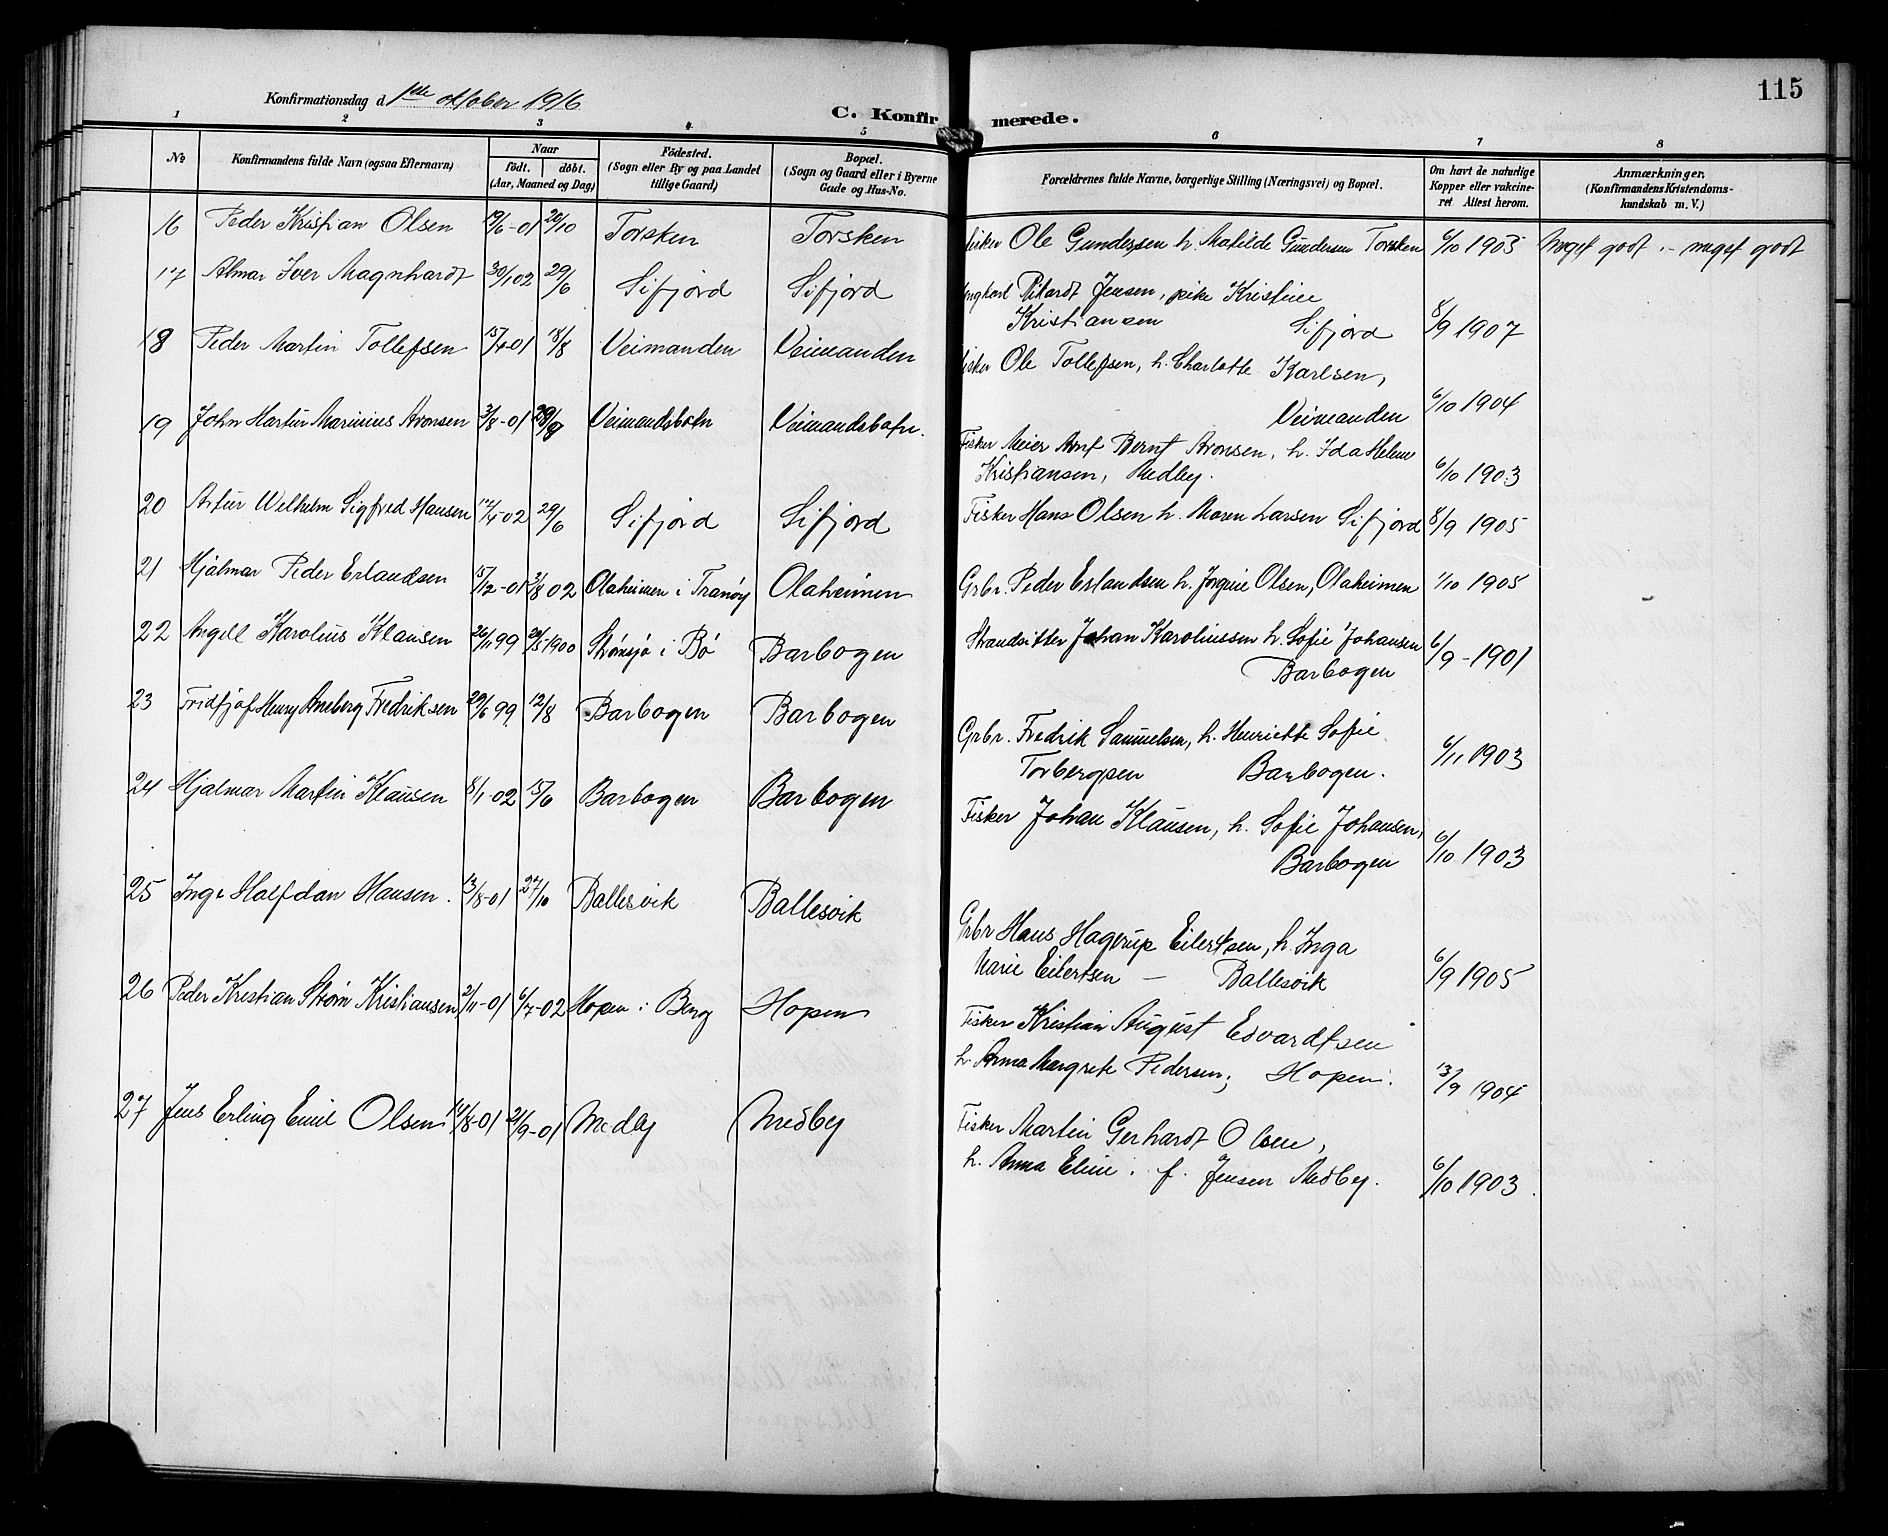 115
Konfirmationsdag d 1ste oktober 1916
C. Konfirmerede.
1 2 3 4 5 6 7 8
No
Konfirmandens fulde Navn (ogsaa Efternavn)
Naar
født. døbt.
(Aar, Maaned og Dag)
Fødested.
(Sogn eller By og paa Landet
tillige Gaard)
Bopæl.
(Sogn og Gaard eller i Byerne
Gade og Hus-No.
Forældrenes fulde Navne, borgerlige Stilling (Næringsvei) og Bopæl.
Om havt de naturlige
Kopper eller vakcine-
ret Attest herom.
Anmærkninger.
(Konfirmandens Kristendoms-
kundskab m. V.)
16 Peder Kristian Olsen 19/6-01 20/10 Torsken Torsken Fisker Ole Gundersen h. Matilde Gundersen Torsken 6/10 1903 Meget godt - meget godt
17 Almar Iver Magnhardt 30/1 02 29/6 Sifjord Sifjord Ungkarl Rikardt Jensen, pike Kristine
Kristiansen Sifjord 8/9 1907
18 Peder Martin Tollefsen 15/4-01 18/8 Veimanden Veimanden Fisker Ole Tollefsen, h. Charlotte Karlsen,
Veimanden 6/10 1904
19 John Hartin Marinius Aronsen 3/8-01 Veimandsbotn Veimandsbotn. Fisker Meier Arnt Bernt Aronsen, h. Ida Helene
Kristiansen, Medby. 6/10 1903
20 Artur Wilhelm Sigfred Hansen 17/4-02 29/6 Sifjord Sifjord Fisker Hans Olsen h. Maren Larsen Sifjord 8/9 1905
21 Hjalmar Peder Erlandsen 15/12-01 3/8 02 Olaheimen i Tranøy Olaheimen Grbr. Peder Erlandsen h. Jørgine Olsen, Olaheimen 1/10 1905
22 Angell Karolius Klausen 26/11 99 20/5 1900 Strønsjø i Bø Barbogen Strandsitter Johan Karoliussen h. Sofie Johansen
Barbogen 6/9-1901
23 Fridtjof Henry Arneberg Fredriksen 29/6 99 12/8 Barbogen Barbogen Grbr. Fredrik Samuelsen, h. Henriette Sofie
Torbergsen Barbogen. 6/11 1903
24 Hjalmar Martin Klausen 8/1-02 15/6 Barbogen Barbogen Fisker Johan Klausen, h. Sofie Johansen,
Barbogen 6/10 1903
25 Inge Halfdan Hansen. 13/8-01 27/10 Ballesvik Ballesvik Grbr Hans Hagerup Eilertsen, h. Inga
Marie Eilertsen - Ballesvik 6/9 1905
26 Peder Kristian Strøm Kristiansen 2/11-01 6/7-02 Hopen i Berg Hopen Fisker Kristian August Edvardtsen
h. Anna Margrete Pedersen; Hopen. 13/9 1904
27 Jens Erling Emil Olsen 14/8-01 21/9-01 Medby Medby Fisker Martin Gerhardt Olsen,
h. Anna Eline. f. Jensen Medby. 6/10 1903.